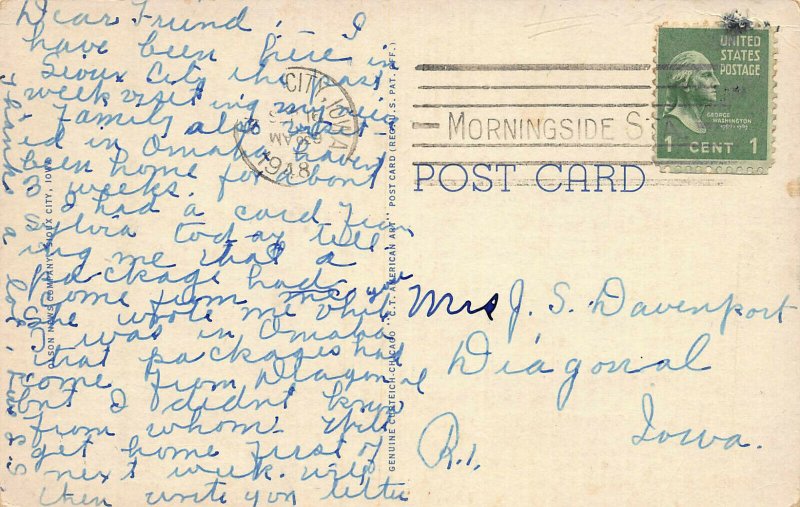 Dear Friend. I
have been here in
Sioux City the past
week visiting my sis
Family also visit
ed in Omaha havent
been home for about
3 weeks.
I had a card from
Sylvia today tell
ing me that a
package had
come from you
She wrote me while
I was in Omaha
that packages had
come from Diagonal
but I didnt know
from whom. Will
get home first of
next week. will
then write you letter
Thanks a lot.
OLSON NEWS COMPANY, SIOUX CITY, IOWA
GENUINE CURTEICH-CHICAGO "C.T. AMERICAN ART" POST CARD (REG. U.S. PAT. OFF.)
CITY, IOWA
AM
1948
MORNINGSIDE
UNITED
STATES
POSTAGE
GEORGE
WASHINGTON
1 CENT 1
POST CARD
Mrs J. S. Davenport
Diagonal
R.1. Iowa.